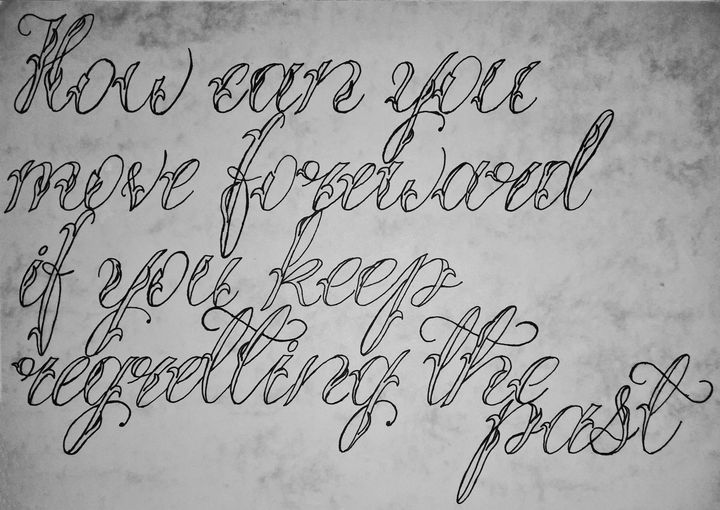 How can you
move foreward
if you keep
regretting the
past